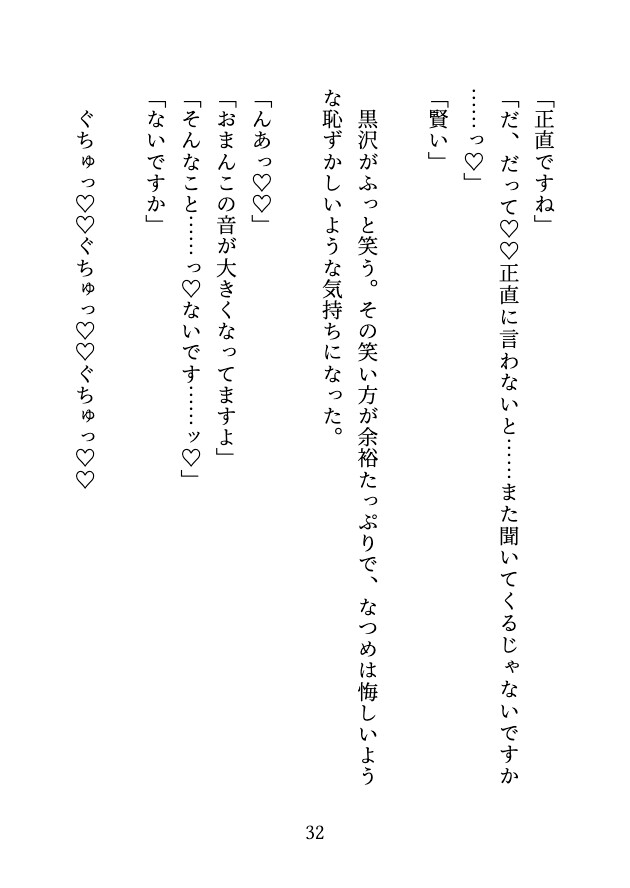 「正直ですね」
「だ、だって♡♡正直に言わないと……また聞いてくるじゃないですか
……っ♡」
「賢い」
黒沢がふっと笑う。その笑い方が余裕たっぷりで、なつめは悔しいよう
な恥ずかしいような気持ちになった。
「んあっ♡♡」
「おまんこの音が大きくなってますよ」
「そんなこと……っ♡ないです……ッ♡」
「ないですか」
ぐちゅっ♡♡ぐちゅっ♡♡ぐちゅっ♡♡
32